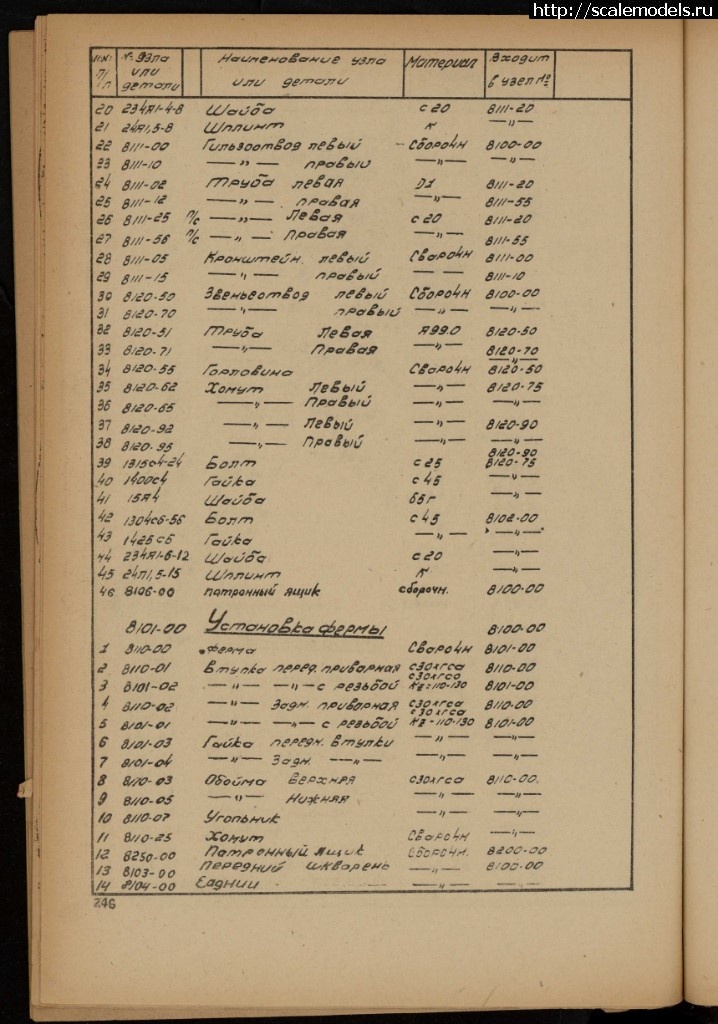 http://scalemodels.ru
№№ п/п № Узла или детали Наименование узла или детали Материал Входит в узел №
20 234А1-4-8 Шайба с20 8111-20
21 24А1,5-8 Шплинт К —"—
22 8111-00 Гильзоотвод левый Сборочн 8100-00
23 8111-10 —"— правый —"— —"—
24 8111-02 Труба левая D1 8111-20
25 8111-12 —"— правая —"— 8111-55
26 8111-25 п/с —"— Левая с20 8111-20
27 8111-56 п/с —"— Правая —"— 8111-55
28 8111-05 Кронштейн. левый Сварочн 8111-00
29 8111-15 —"— правый — — 8111-10
30 8120-50 Звеньеотвод левый Сборочн 8100-00
31 8120-70 —"— правый —"— —"—
32 8120-51 Труба Левая Я99.0 8120-50
33 8120-71 —"— Правая —"— 8120-70
—"—
34 8120-55 Горловина Сварочн 8120-50
35 8120-62 Хомут Левый —"— 8120-75
36 8120-65 —"— Правый —"— —"—
37 8120-92 —"— Левый —"— 8120-90
38 8120-95 —"— Правый —"— —"—
8120-90
39 1315с4-24 Болт с25 8120-75
40 1400с4 Гайка с45 —"—
41 15А4 Шайба 65г —"—
42 1304с6-56 Болт с45 8102-00
43 1425с6 Гайка —"— —"—
44 234А1-6-12 Шайба с20 —"—
45 24А1,5-15 Шплинт К —"—
46 8106-00 патронный ящик сборочн. 8100-00
8101-00 Установка фермы 8100-00
1 8110-00 Ферма Сварочн 8101-00
2 8110-01 Втулка перед. приварная с30хгса 8110-00
с30хгса
3 8101-02 —"— —"— с резьбой Kz=110-130 8101-00
4 8110-02 —"— Задн. приварная с30хгса 8110-00
с30хгса
5 8101-01 —"— —"— с резьбой Kz=110-130 8101-00
6 8101-03 Гайка передн. втулки —"— —"—
7 8101-04 —"— Задн. —"— —"— —"—
8 8110-03 Обойма Верхняя с30хгса 8110-00.
9 8110-05 —"— Нижняя —"— —"—
10 8110-07 Угольник —"— —"—
11 8110-25 Хомут Сварочн —"—
12 8250-00 Патронный ящик Сборочн. 8200-00
13 8103-00 Передний шкварень —"— 8100-00
14 8104-00 Задний —"— —"— —"—
246